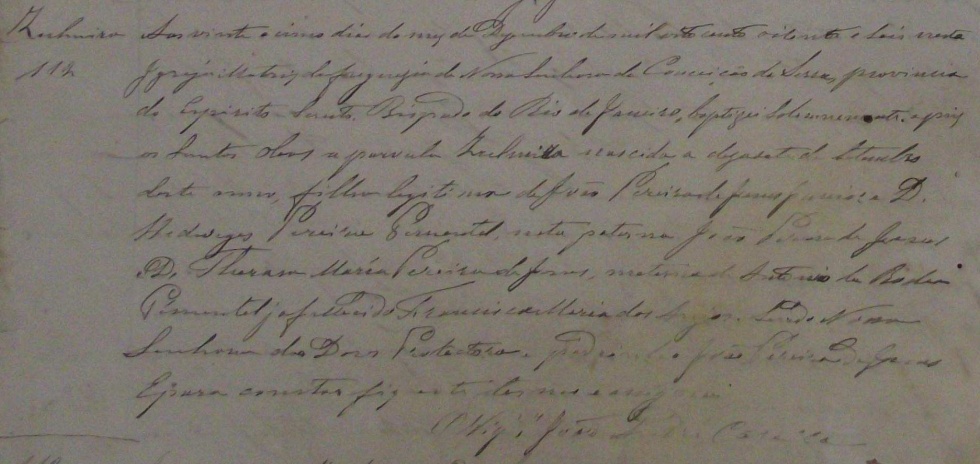 Zulmira Aos vinte e cinco dias do mez de Dezembro de mil oito cento oitenta e seis nesta
112 Igreja Matriz da freguezia de Nossa Senhora da Conceição da Serra, provincia
do Espirito Santo, Bispado do Rio de Janeiro, baptizei solemnemente, e puz
os Santos oleos a parvula Zulmira nascida a dezasete de
deste anno, filha legitima de João Pereira de Jesus e D.
Hedwiges Pereira Pimentel, neta paterna João Pereira de Jesus
D. Theresa Maria Pereira de Jesus, materna de Antonio da
Pimentel já fallecido Francisca Maria dos Anjos. Sendo Nossa
Senhora das Dores Protectora e padrinho João Pereira de Jesus
E para constar fiz este
O Vigº João